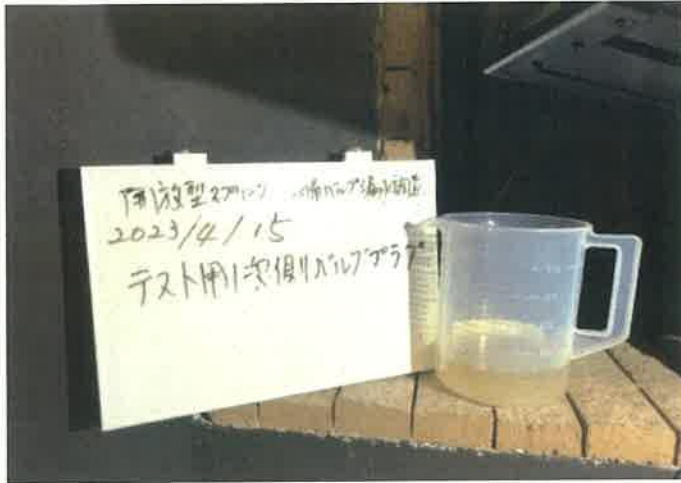 開放型スプリンクラー バルブ漏水調査
2023/4/15
テスト用1次側バルブプラグ